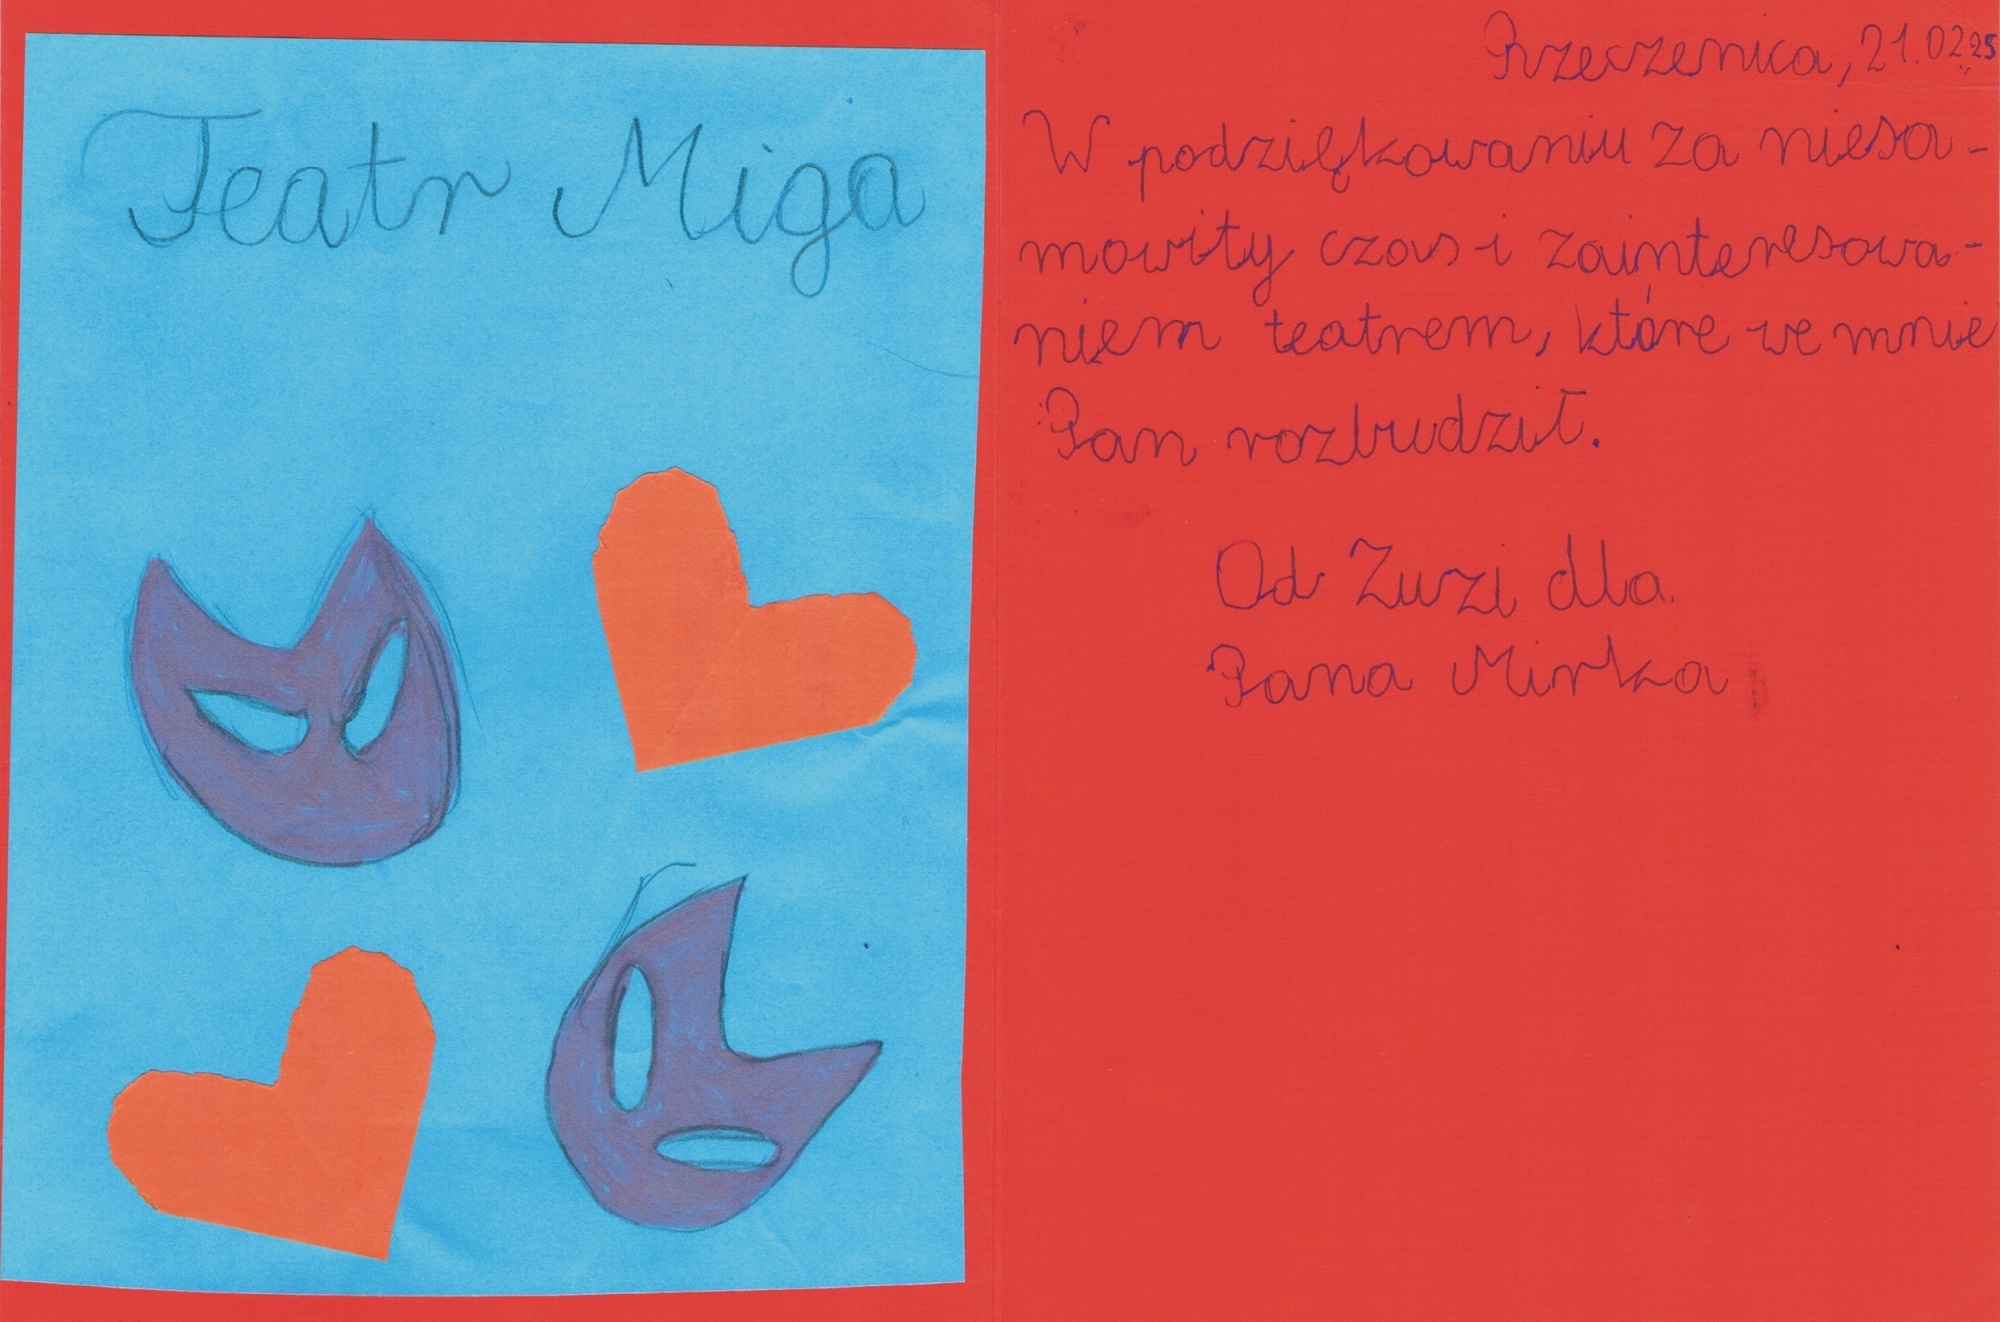 Teatr Miga
Rzeczenica, 21.02.25
W podziękowaniu za niesa-
mowity czas i zainteresowa-
niem teatrem, które we mnie
Pan rozbudził.
Od Zuzi dla
Pana Mirka